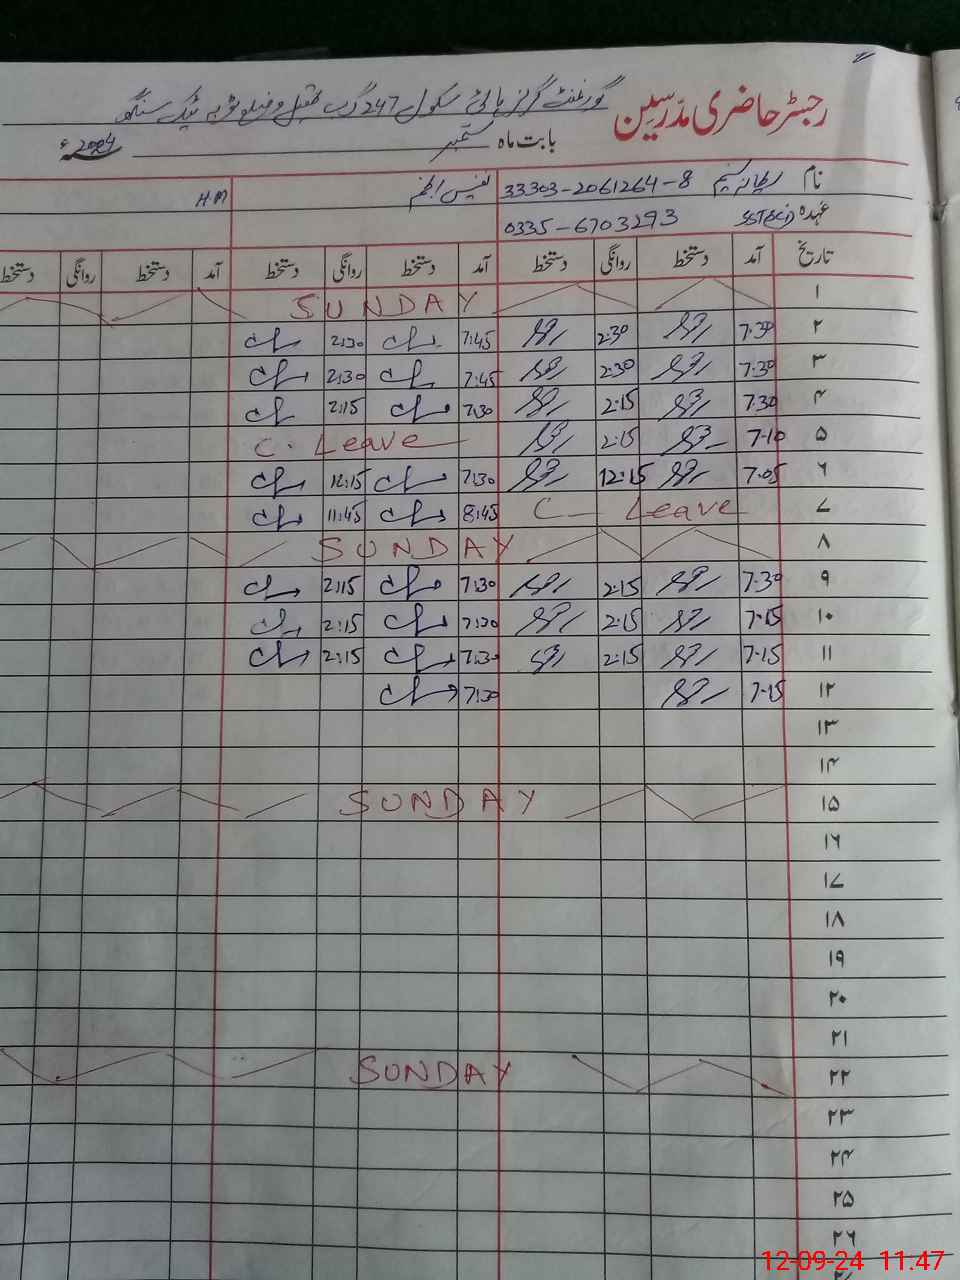 رجسٹر حاضری مدرسین
گورنمنٹ گرلز ہائی سکول 247 گ ب تحصیل و ضلع ٹوبہ ٹیک سنگھ
بابت ماہ ستمبر 2024ء
نام 33303-2061264-8 H.M
عہدہ SST(Sci) 0335-6703293
تاریخ آمد دستخط روانگی دستخط آمد دستخط روانگی دستخط آمد دستخط روانگی دستخط
۱ SUNDAY
۲ 7:30 2:30 7:45 2:30
۳ 7:30 2:30 7:45 2:30
۴ 7:30 2:15 7:30 2:15
۵ 7:10 2:15 C. Leave
۶ 7:05 12:15 7:30 12:15
۷ C- Leave 8:45 11:45
۸ SUNDAY
۹ 7:30 2:15 7:30 2:15
۱۰ 7:15 2:15 7:30 2:15
۱۱ 7:15 2:15 7:30 2:15
۱۲ 7:15 7:30
۱۳
۱۴
۱۵ SUNDAY
۱۶
۱۷
۱۸
۱۹
۲۰
۲۱
۲۲ SUNDAY
۲۳
۲۴
۲۵
۲۶
12-09-24 11.47